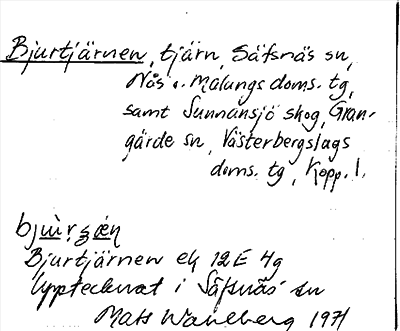 Bjurtjärnen, tjärn, Säfsnäs sn,
Nås o. Malungs doms. tg,
samt Sunnansjö skog, Gran-
gärde sn, Västerbergslags
doms. tg, Kopp. l.
Bjurtjärnen ek 12E 4g
Upptecknat i Säfsnäs sn
Mats Wahlberg 1971